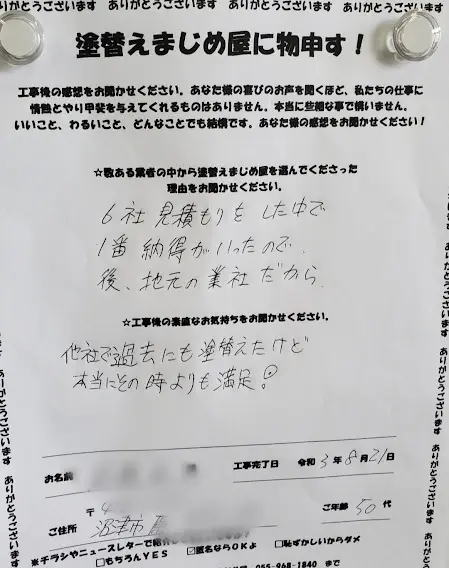 ありがとうございます ありがとうございます ありがとうございます
塗替えまじめ屋に物申す！
工事後の感想をお聞かせください。あなた様の喜びのお声を聞くほど、私たちの仕事に
情熱とやり甲斐を与えてくれるものはありません。本当に些細な事で構いません。
いいこと、わるいこと、どんなことでも結構です。あなた様の感想をお聞かせください！
☆数ある業者の中から塗替えまじめ屋を選んでくださった
理由をお聞かせください。
6社見積もりをした中で
1番納得がいったので、
後、地元の業社だから
☆工事後の素直なお気持ちをお聞かせください。
他社で過去にも塗替えたけど
本当にその時よりも満足!
お名前
工事完了日 令和 3 年 8 月 21 日
〒4
ご住所 沼津市
ご年齢 50 代
※チラシやニュースレターで紹介
□もちろんYES ☑匿名ならOKよ □恥ずかしいからダメ
055-968-1840 まで
ありがとうございます ありがとうございます
ありがとうございます ありがとうございます